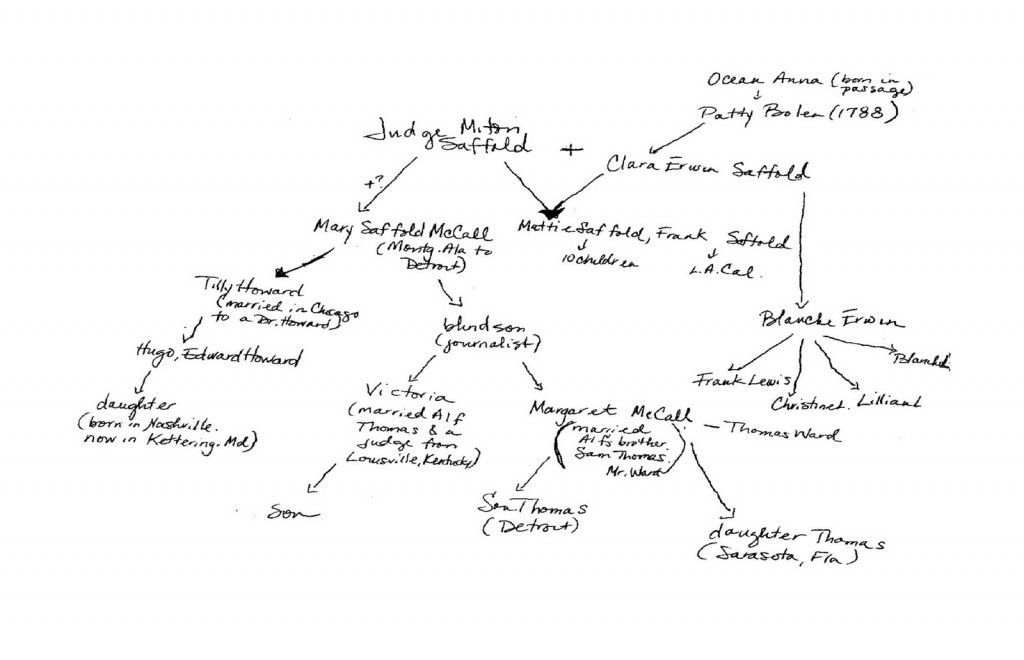 Ocean Anna (born in
passage)
Patty Bolen (1788)
Judge Miton
Saffold
+
Clara Erwin Saffold
+?
Mary Saffold McCall
(Montg. Ala to
Detroit)
Mattie Saffold, Frank Saffold
10 children
L.A. Cal.
Tilly Howard
(married in Chicago
to a Dr. Howard)
blind son
(journalist)
Blanche Erwin
Hugo, Edward Howard
Blanche
Frank Lewis
Christine L. Lillian L
daughter
(born in Nashville.
now in Kettering, Md)
Victoria
(married Alf
Thomas & a
judge from
Louisville, Kentucky)
Margaret McCall
(married
Alf's brother.
Sam Thomas.
Mr. Ward)
— Thomas Ward
Son
Son Thomas
(Detroit)
daughter Thomas
(Sarasota, Fla)